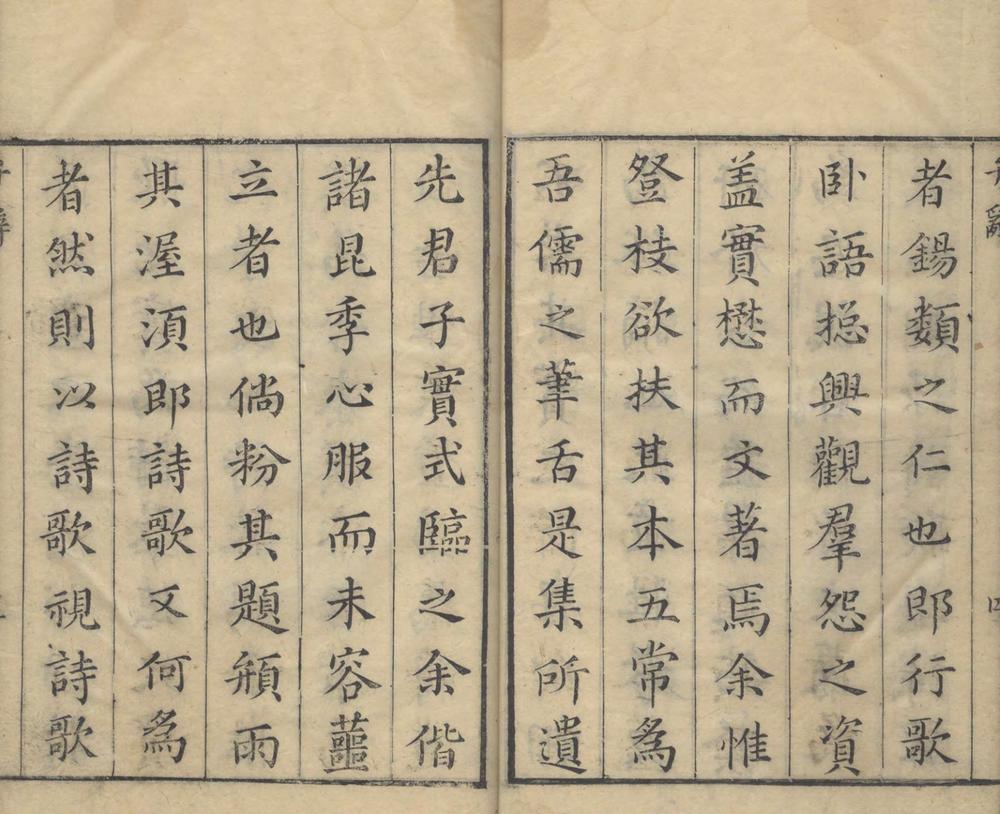 者鍚類之仁也即行歌
卧語揔興觀羣怨之資
盖實懋而文著焉余惟
登枝欲扶其本五常為
吾儒之筆舌是集所遺
先君子實式臨之余偕
諸昆季心服而未容蘁
立者也倘粉其題頩雨
其渥湏即詩歌又何為
者然則以詩歌視詩歌